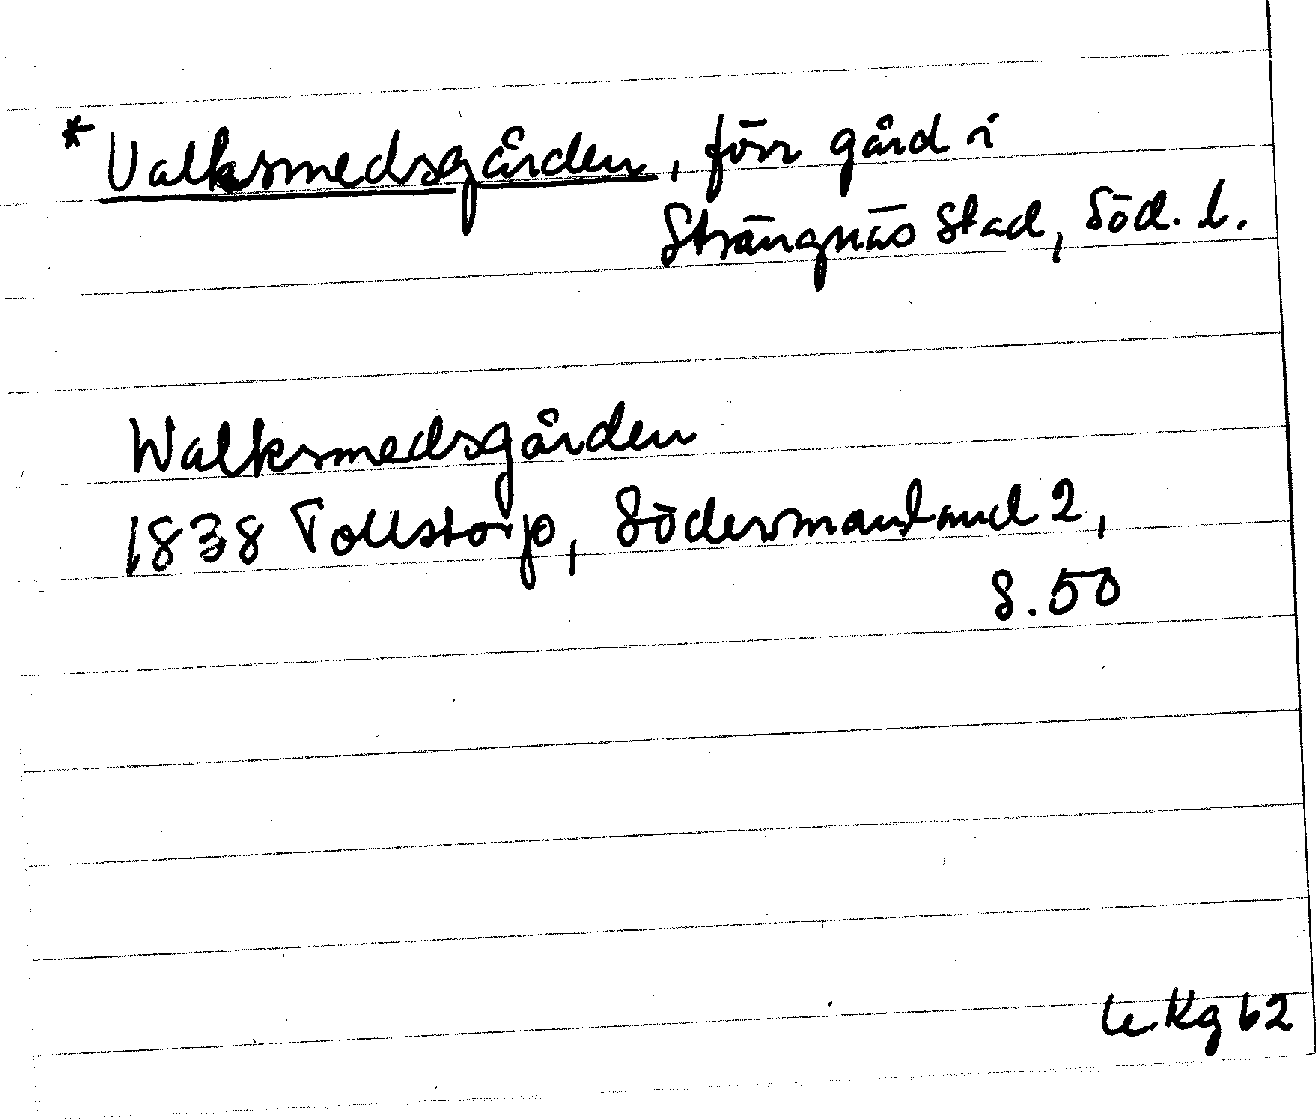 * Valksmedsgården, förr gård i
Strängnäs Stad, Söd. l.
Walksmedsgården
1838 Tollstorp, Södermanland 2,
s. 50
62